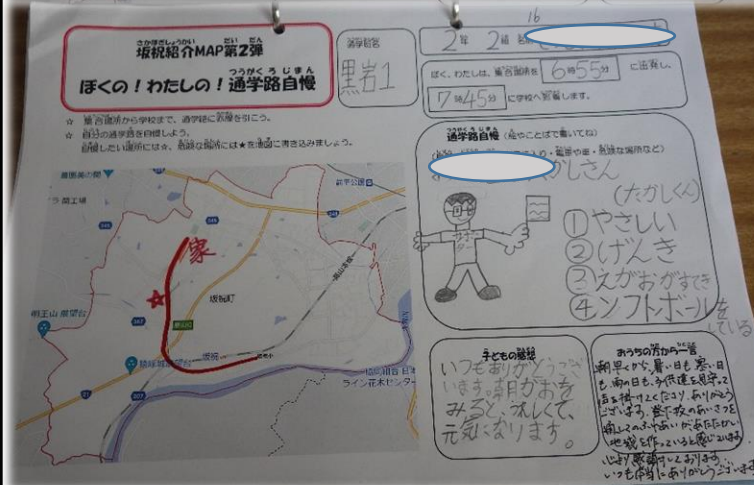 坂祝紹介MAP第2弾
さかほぎしょうかい だい だん
ぼくの!わたしの!通学路自慢
つうがくろじまん
☆ 集合場所から学校まで、通学路に赤線を引こう。
☆ 自分の通学路を自慢しよう。
自慢したい場所には☆、危険な場所には★を地図に書き込みましょう。
通学班名
黒岩1
16
2年 2組 名前
ぼく、わたしは、集合場所を 6時55分 に出発し、
7時45分 に学校へ到着します。
通学路自慢(絵やことばで書いてね)
つうがくろじまん
・危険な場所など)
かしさん
(たかしくん)
①やさしい
②げんき
③えがおがすてき
④ソフトボールを
している
家
坂祝町
坂祝
明王山 展望台
猿啄城展望台
ライン花木センター
子どもの感想
いつもありがとうござ
います。朝かおを
みると、うれしくて、
元気になります。
おうちの方から一言
朝早くから、暑い日も、寒い日
も、雨の日も、子供達を見守って
声を掛けてくださり、ありがとう
ございます。登下校のあいさつを
通してのふれあいが、あたたかい
地域を作っていると感じています。
心より感謝しております。
いつも本当にありがとうございます